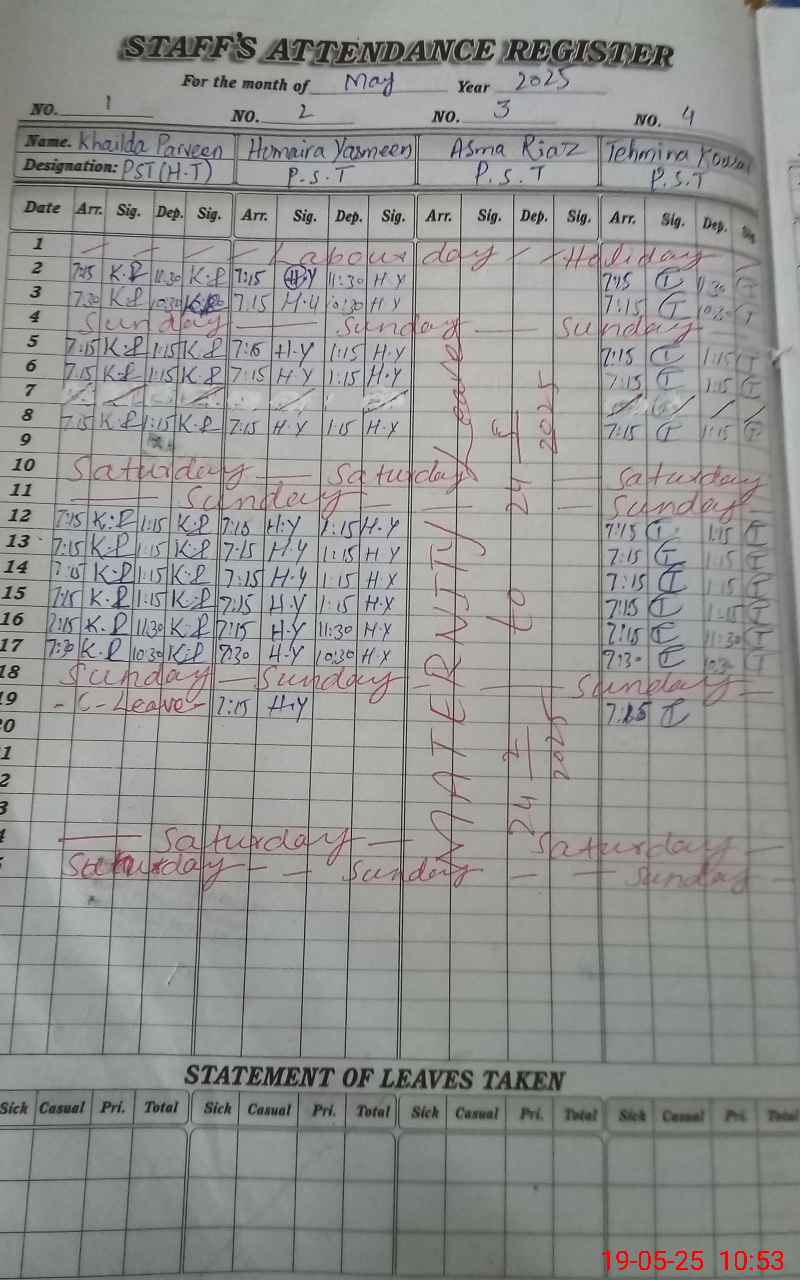 STAFF'S ATTENDANCE REGISTER
For the month of May Year 2025
NO. 1 NO. 2 NO. 3 NO. 4
Name. Khailda Parveen Humaira Yasmeen Asma Riaz Tehmina
Designation: PST (H-T) P.S.T P.S.T P.S.T
Date Arr. Sig. Dep. Sig. Arr. Sig. Dep. Sig. Arr. Sig. Dep. Sig. Arr. Sig. Dep. Sig
1 Labour day Holiday
2 7:15 K.P 11:30 K.P 7:15 H.Y 11:30 H.Y 7:15 T 11:30 T
3 7:30 K.P 10:30 K.P 7:15 H.Y 10:30 H.Y 7:15 T 10:30 T
4 Sunday Sunday Sunday
5 7:15 K.P 1:15 K.P 7:15 H.Y 1:15 H.Y 7:15 T 1:15 T
6 7:15 K.P 1:15 K.P 7:15 H.Y 1:15 H.Y 7:15 T 1:15 T
7
8 7:15 K.P 1:15 K.P 7:15 H.Y 1:15 H.Y 7:15 T 1:15 T
9
10 Saturday Saturday Saturday
11 Sunday Sunday
12 7:15 K.P 1:15 K.P 7:15 H.Y 1:15 H.Y 7:15 T 1:15 T
13 7:15 K.P 1:15 K.P 7:15 H.Y 1:15 H.Y 7:15 T 1:15 T
14 7:15 K.P 1:15 K.P 7:15 H.Y 1:15 H.Y 7:15 T 1:15 T
15 7:15 K.P 1:15 K.P 7:15 H.Y 1:15 H.Y 7:15 T 1:15 T
16 7:15 K.P 11:30 K.P 7:15 H.Y 11:30 H.Y 7:15 T 11:30 T
17 7:30 K.P 10:30 K.P 7:30 H.Y 10:30 H.Y 7:30 T 10:30 T
18 Sunday Sunday Sunday
19 - C-Leave- 7:15 H.Y 7:15 T
0
1
2
3
Saturday Saturday
Saturday Sunday Sunday
MATERNITY Leave
24 2 2025 to 24 5 2025
STATEMENT OF LEAVES TAKEN
Sick Casual Pri. Total Sick Casual Pri. Total Sick Casual Pri. Total Sick Casual Pri. Total
19-05-25 10:53